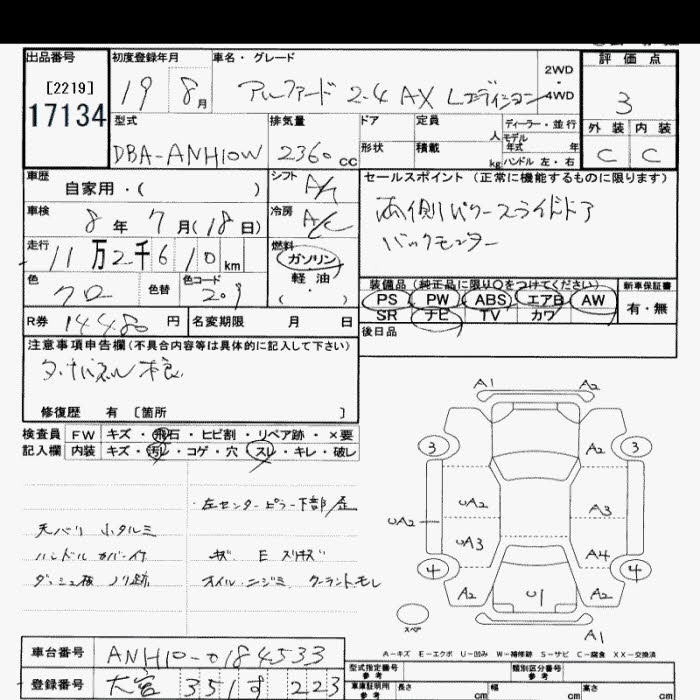 出品番号 初度登録年月 車名・グレード 評価点
[2219]
17134
19 8月 アルファード 2.4 AX Lエディション 2WD・4WD 3
型式 排気量 ドア 定員 人 ディーラー・並行 外装 内装
DBA-ANH10W 2360cc 形状 積載 kg モデル年式 年 ハンドル 左・右 C C
車歴 自家用・( ) シフト A/
セールスポイント(正常に機能するものに限ります)
車検 8年7月(18日) 冷房 A/C
両側パワースライドドア
バックモニター
走行 11万2千610km 燃料 ガソリン・軽油・( )
色 クロ 色替 色コード 209
装備品(純正品に限り○をつけてください) 新車保証書
PS PW ABS エアB AW 有・無
SR ナビ TV カワ
R券 14480円 名変期限 月 日
後日品
注意事項申告欄(不具合内容等は具体的に記入して下さい)
修復歴 有〔箇所 〕
検査員 FW キズ・飛石・ヒビ割・リペア跡・×要
記入欄 内装 キズ・汚レ・コゲ・穴・スレ・キレ・破レ
左センターピラー下部
天バリ 小タルミ
ハンドル カバー付 キズ E スリキズ
ダッシュ板 ノリ跡 オイルニジミ クーラントモレ
A1 A2
3 A2 3
UA2 A3
UA2
UA3 A4
4 4
A2 U1 A2
スペア A1
A-キズ E-エクボ U-凹み W-補修跡 S-サビ C-腐食 XX-交換済
車台番号 ANH10-0184533
登録番号 大宮 351 す 223
型式指定番号 参考 類別区分番号 参考
車庫証明用 参考 長さ cm 幅 cm 高さ cm